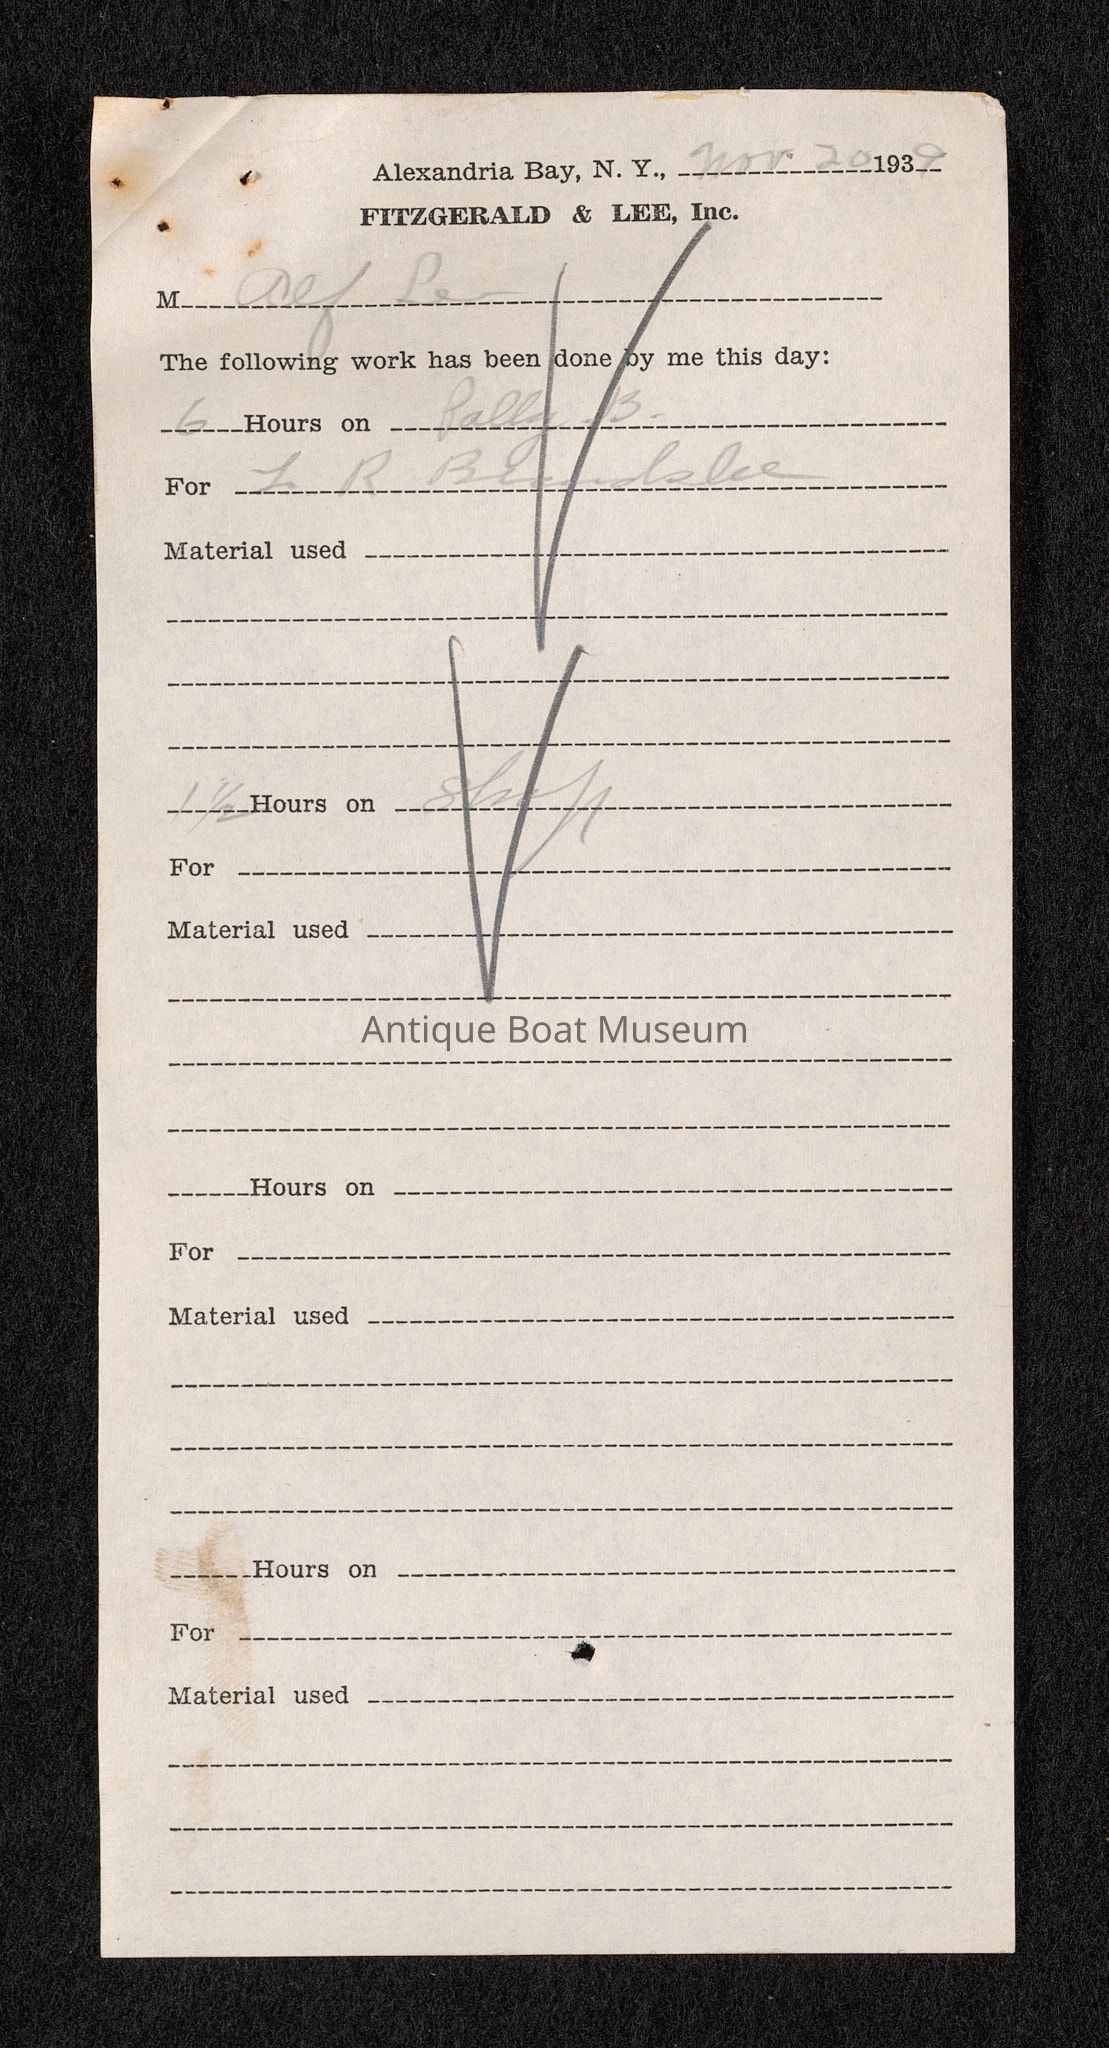 Alexandria Bay, N. Y., Nov. 20 1939
FITZGERALD & LEE, Inc.
M Alf Lee
The following work has been done by me this day:
6 Hours on Polly B.
For L R Beardslee
Material used
1 1/2 Hours on Shop
For
Material used
Antique Boat Museum
Hours on
For
Material used
Hours on
For
Material used